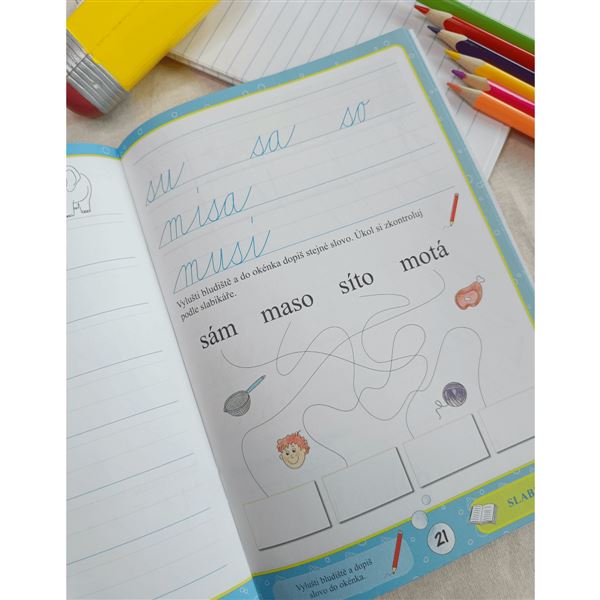 su sa so
mísa
musí
Vylušti bludiště a do okénka dopiš stejné slovo. Úkol si zkontroluj
podle slabikáře.
sám maso síto motá
21
Vylušti bludiště a dopiš
slovo do okénka.